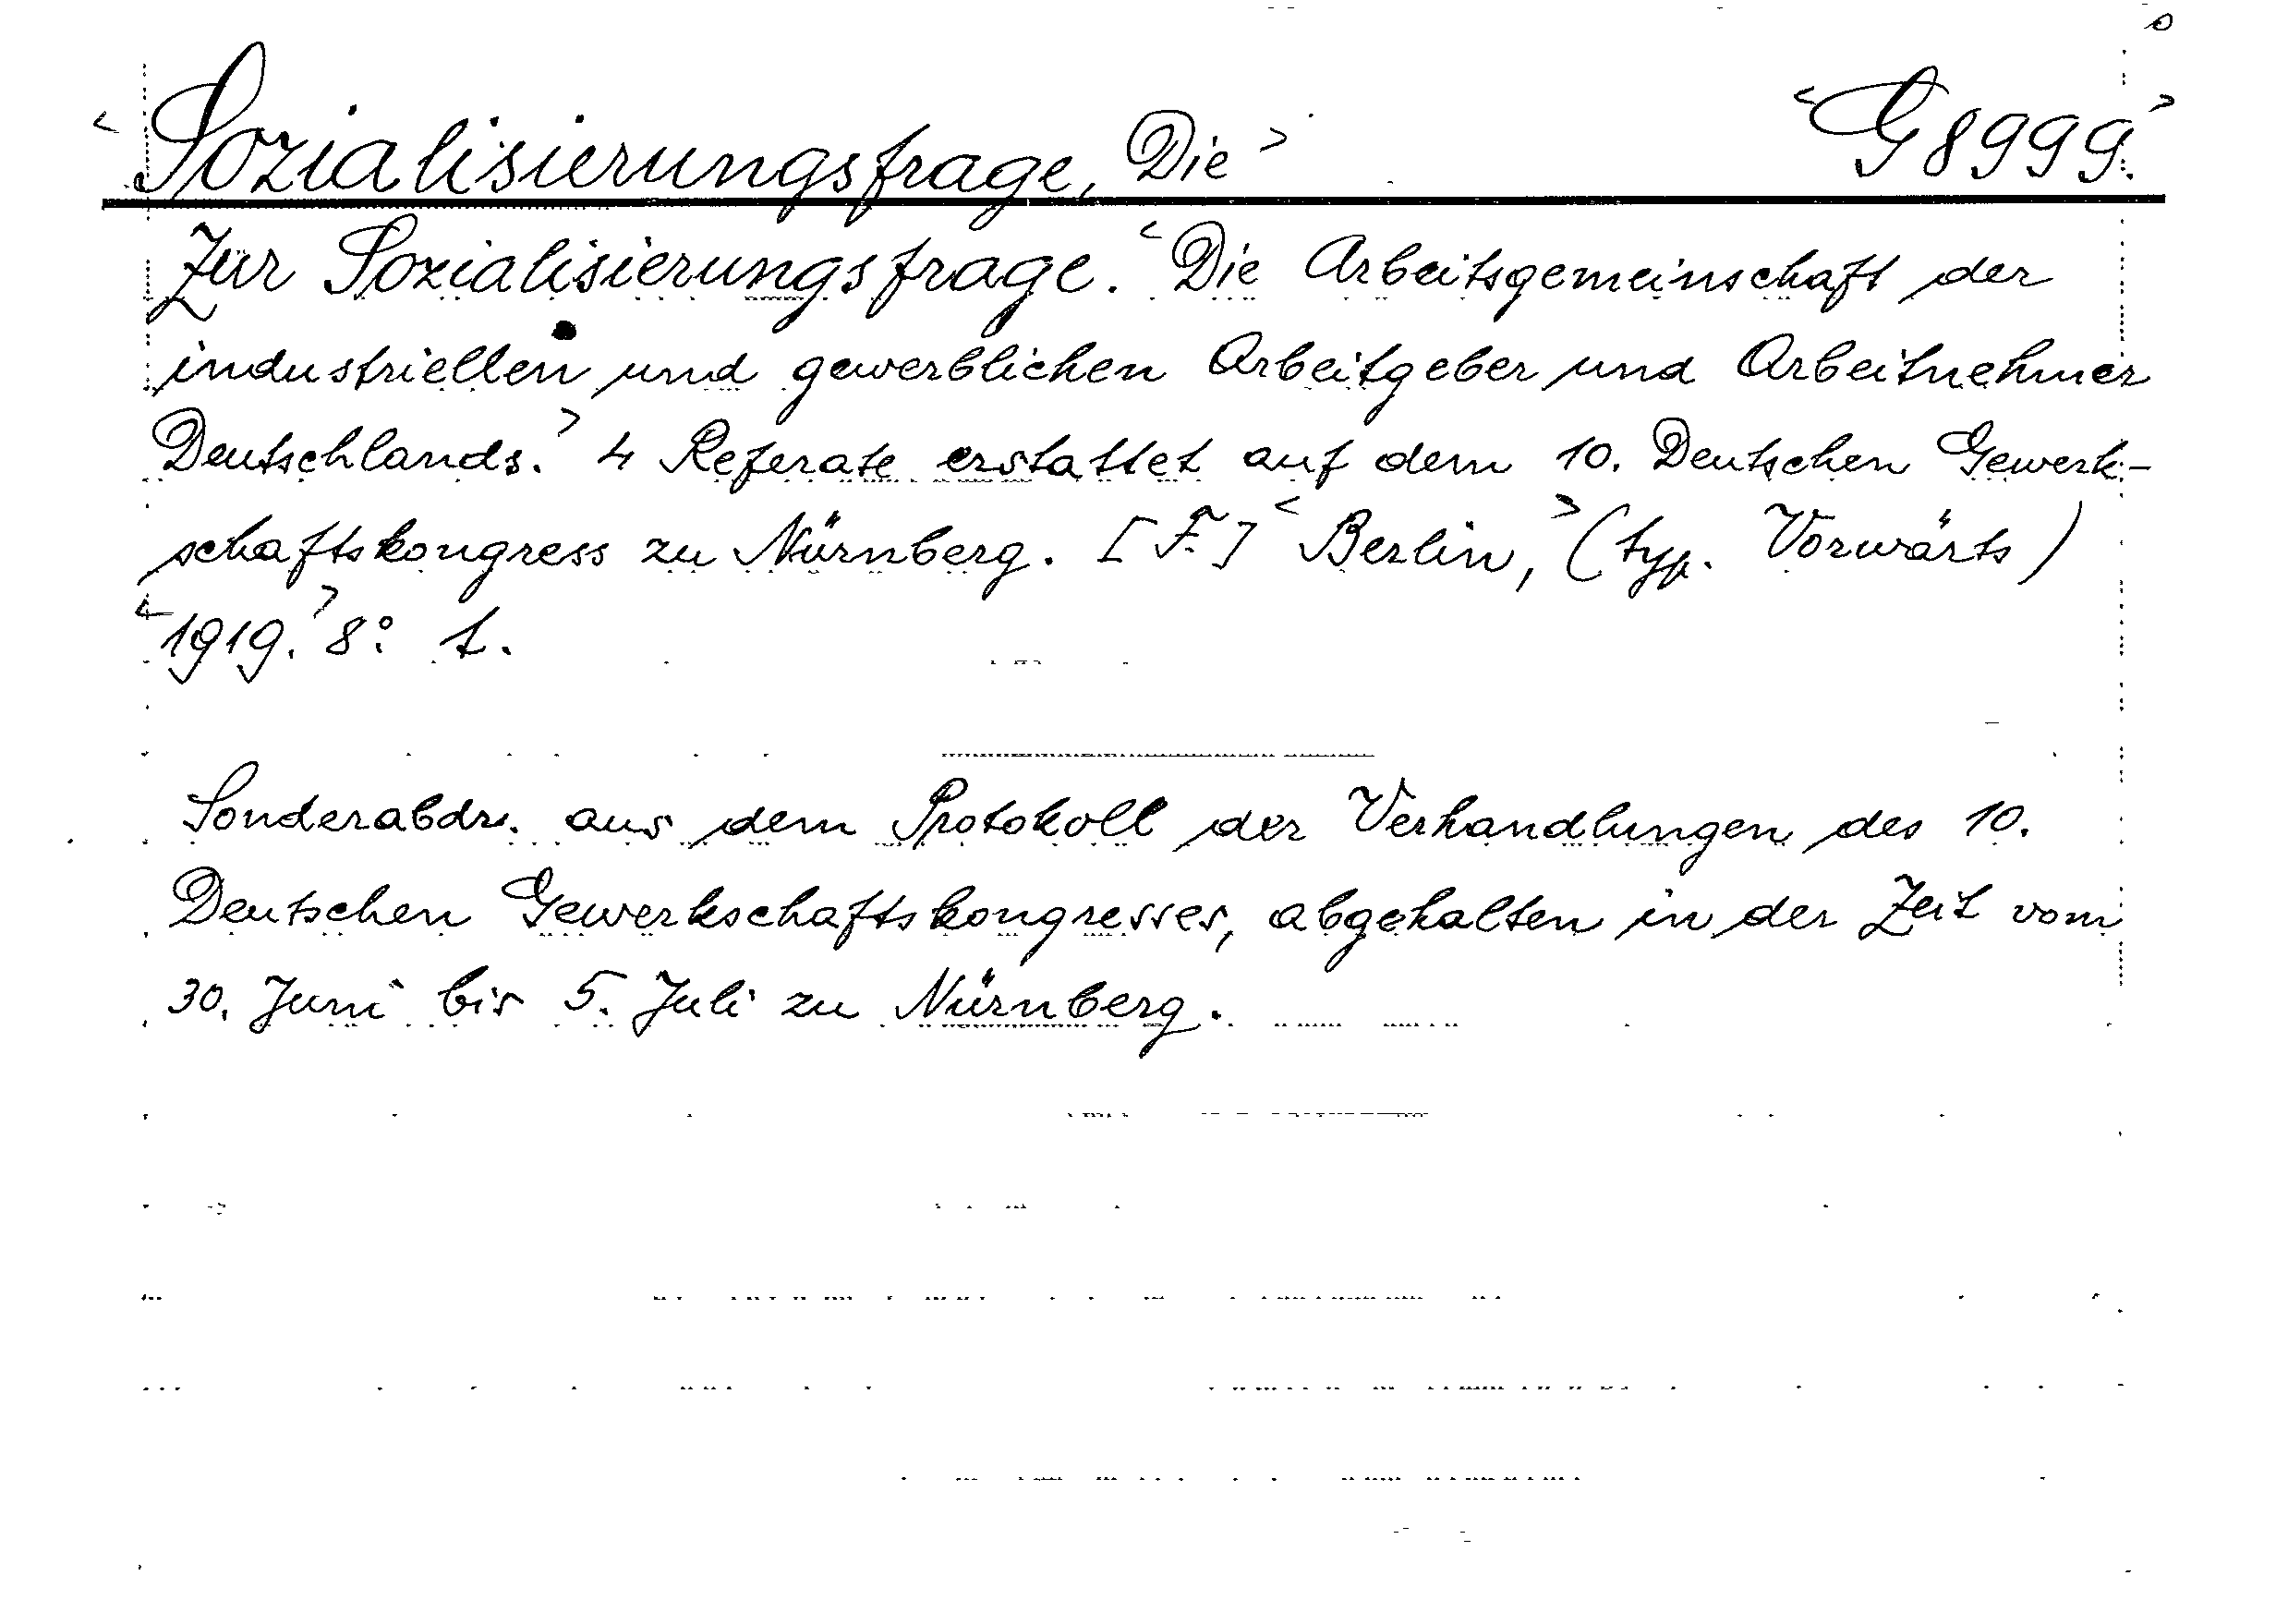 <Sozialisierungsfrage, Die> <G 8999.>
Zur Sozialisierungsfrage. <Die Arbeitsgemeinschaft der
industriellen und gewerblichen Arbeitgeber und Arbeitnehmer
Deutschlands.> 4 Referate erstattet auf dem 10. Deutschen Gewerk-
schaftskongress zu Nürnberg. [F.] <Berlin,> (typ. Vorwärts)
<1919.> 8:° 1.
Sonderabdr. aus dem Protokoll der Verhandlungen des 10.
Deutschen Gewerkschaftskongresses, abgehalten in der Zeit vom
30. Juni bis 5. Juli zu Nürnberg.